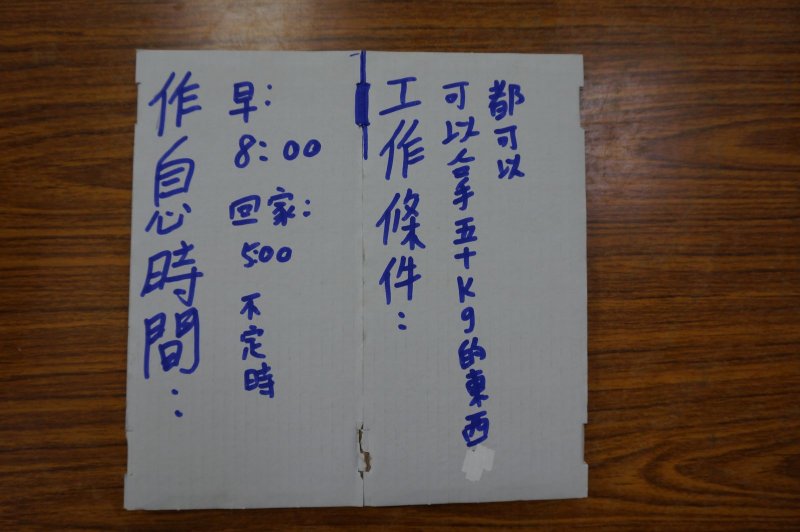 作息時間：
早：
8：00
回家：
500
不定時
工作條件：
可以拿五十Kg的東西
都可以